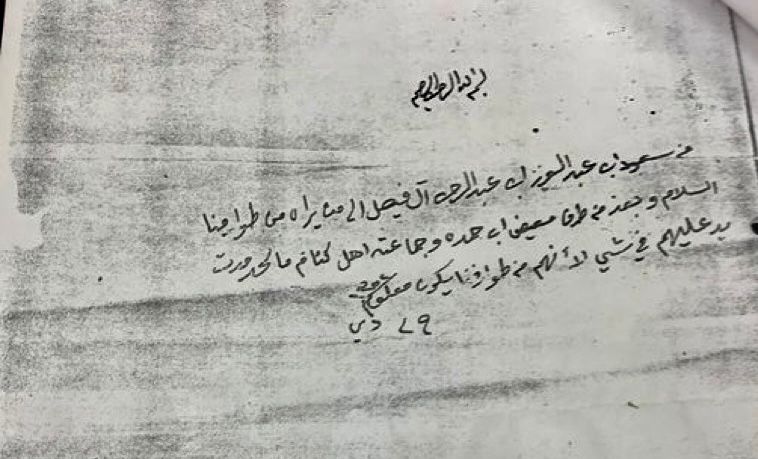 بسم الله الرحمن الرحيم
من سعود ابن عبد العزيز ابن عبد الرحمن آل فيصل الى من يراه من طوارفنا
السلام وبعد من طرف معيض ابن حمده وجماعته اهل كتنه مالحد ورت
يد عليهم في شي لأنهم من طوارفنا يكون معلوم